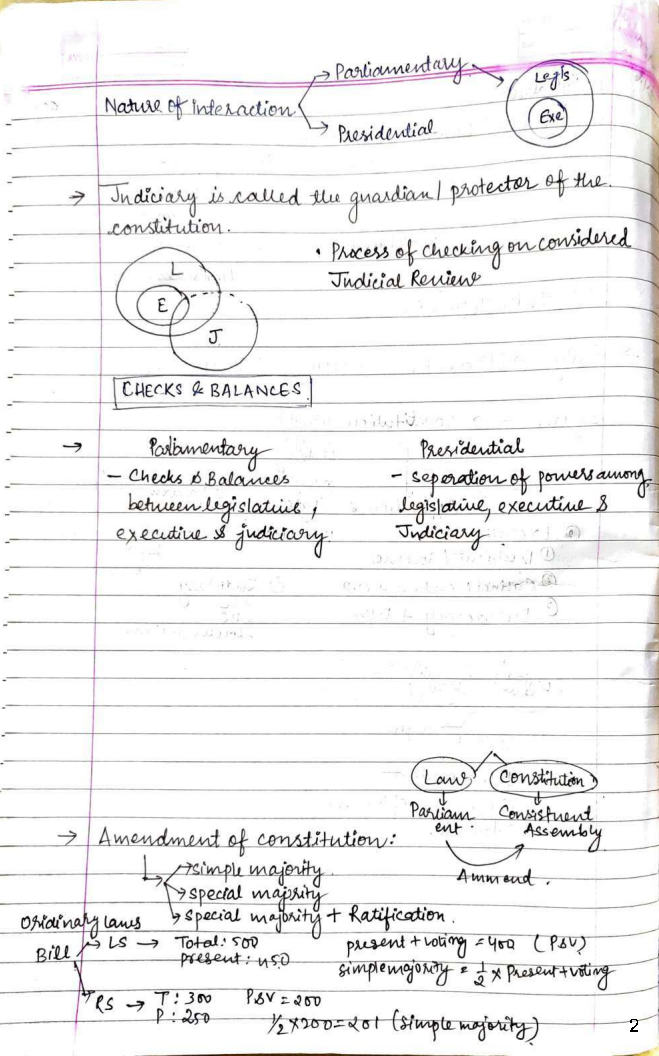 Parliamentary
Legis.
Nature of interaction
Exe
Presidential
→ Judiciary is called the guardian/protector of the
constitution.
• Process of checking on considered
Judicial Review
L
E
J
CHECKS & BALANCES
→ Parliamentary
- Checks & Balances
between legislative,
executive & judiciary.
Presidential
- seperation of powers among
legislative, executive &
Judiciary
Law Constitution
Parliam
ent.
Consistuent
Assembly
Ammend.
→ Amendment of constitution:
→ simple majority
→ special majority
→ special majority + Ratification.
Oridinary laws
Bill → LS → Total: 500
present: 450
present + voting = 400 (P&V)
simple majority = 1/2 × Present + voting
→ RS → T: 300
P: 250
P&V = 200
1/2 × 200 = 201 (simple majority)
2